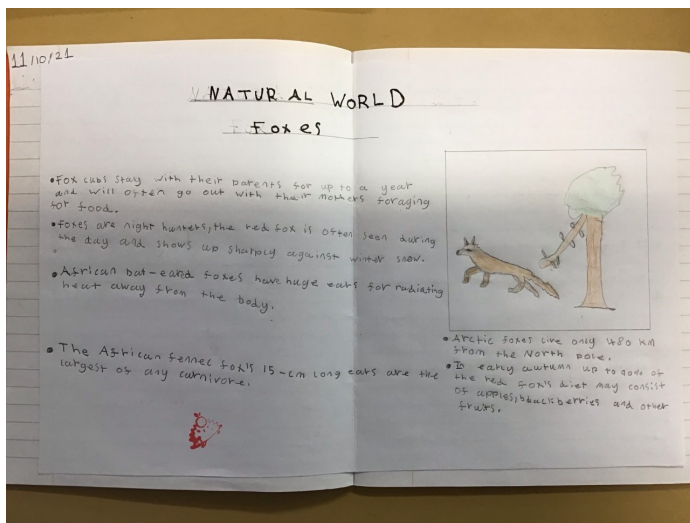 11/10/21
NATURAL WORLD
Foxes
• Fox cubs stay with their parents for up to a year
and will often go out with their mothers foraging
for food.
• foxes are night hunters, the red fox is often seen during
the day and shows up sharply against winter snow.
• African bat-eard foxes have huge ears for radiating
heat away from the body.
• The African fennec fox's 15-cm long ears are the
largest of any carnivore.
• Arctic foxes live only 480 km
from the North pole.
• In early autumn up to of
the red fox's diet may consist
of apples, blackberries and other
fruits.